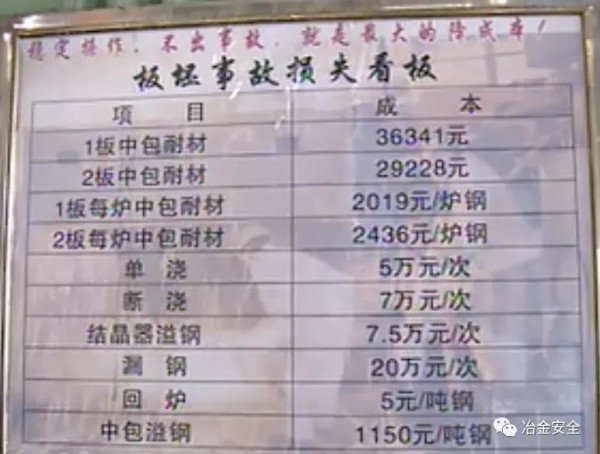 稳定操作，不出事故，就是最大的降成本！
板坯事故损失看板
項 目 成 本
1板中包耐材 36341元
2板中包耐材 29228元
1板每炉中包耐材 2019元/炉钢
2板每炉中包耐材 2436元/炉钢
单 浇 5万元/次
断 浇 7万元/次
结晶器溢钢 7.5万元/次
漏 钢 20万元/次
回 炉 5元/吨钢
中包溢钢 1150元/吨钢
冶金安全